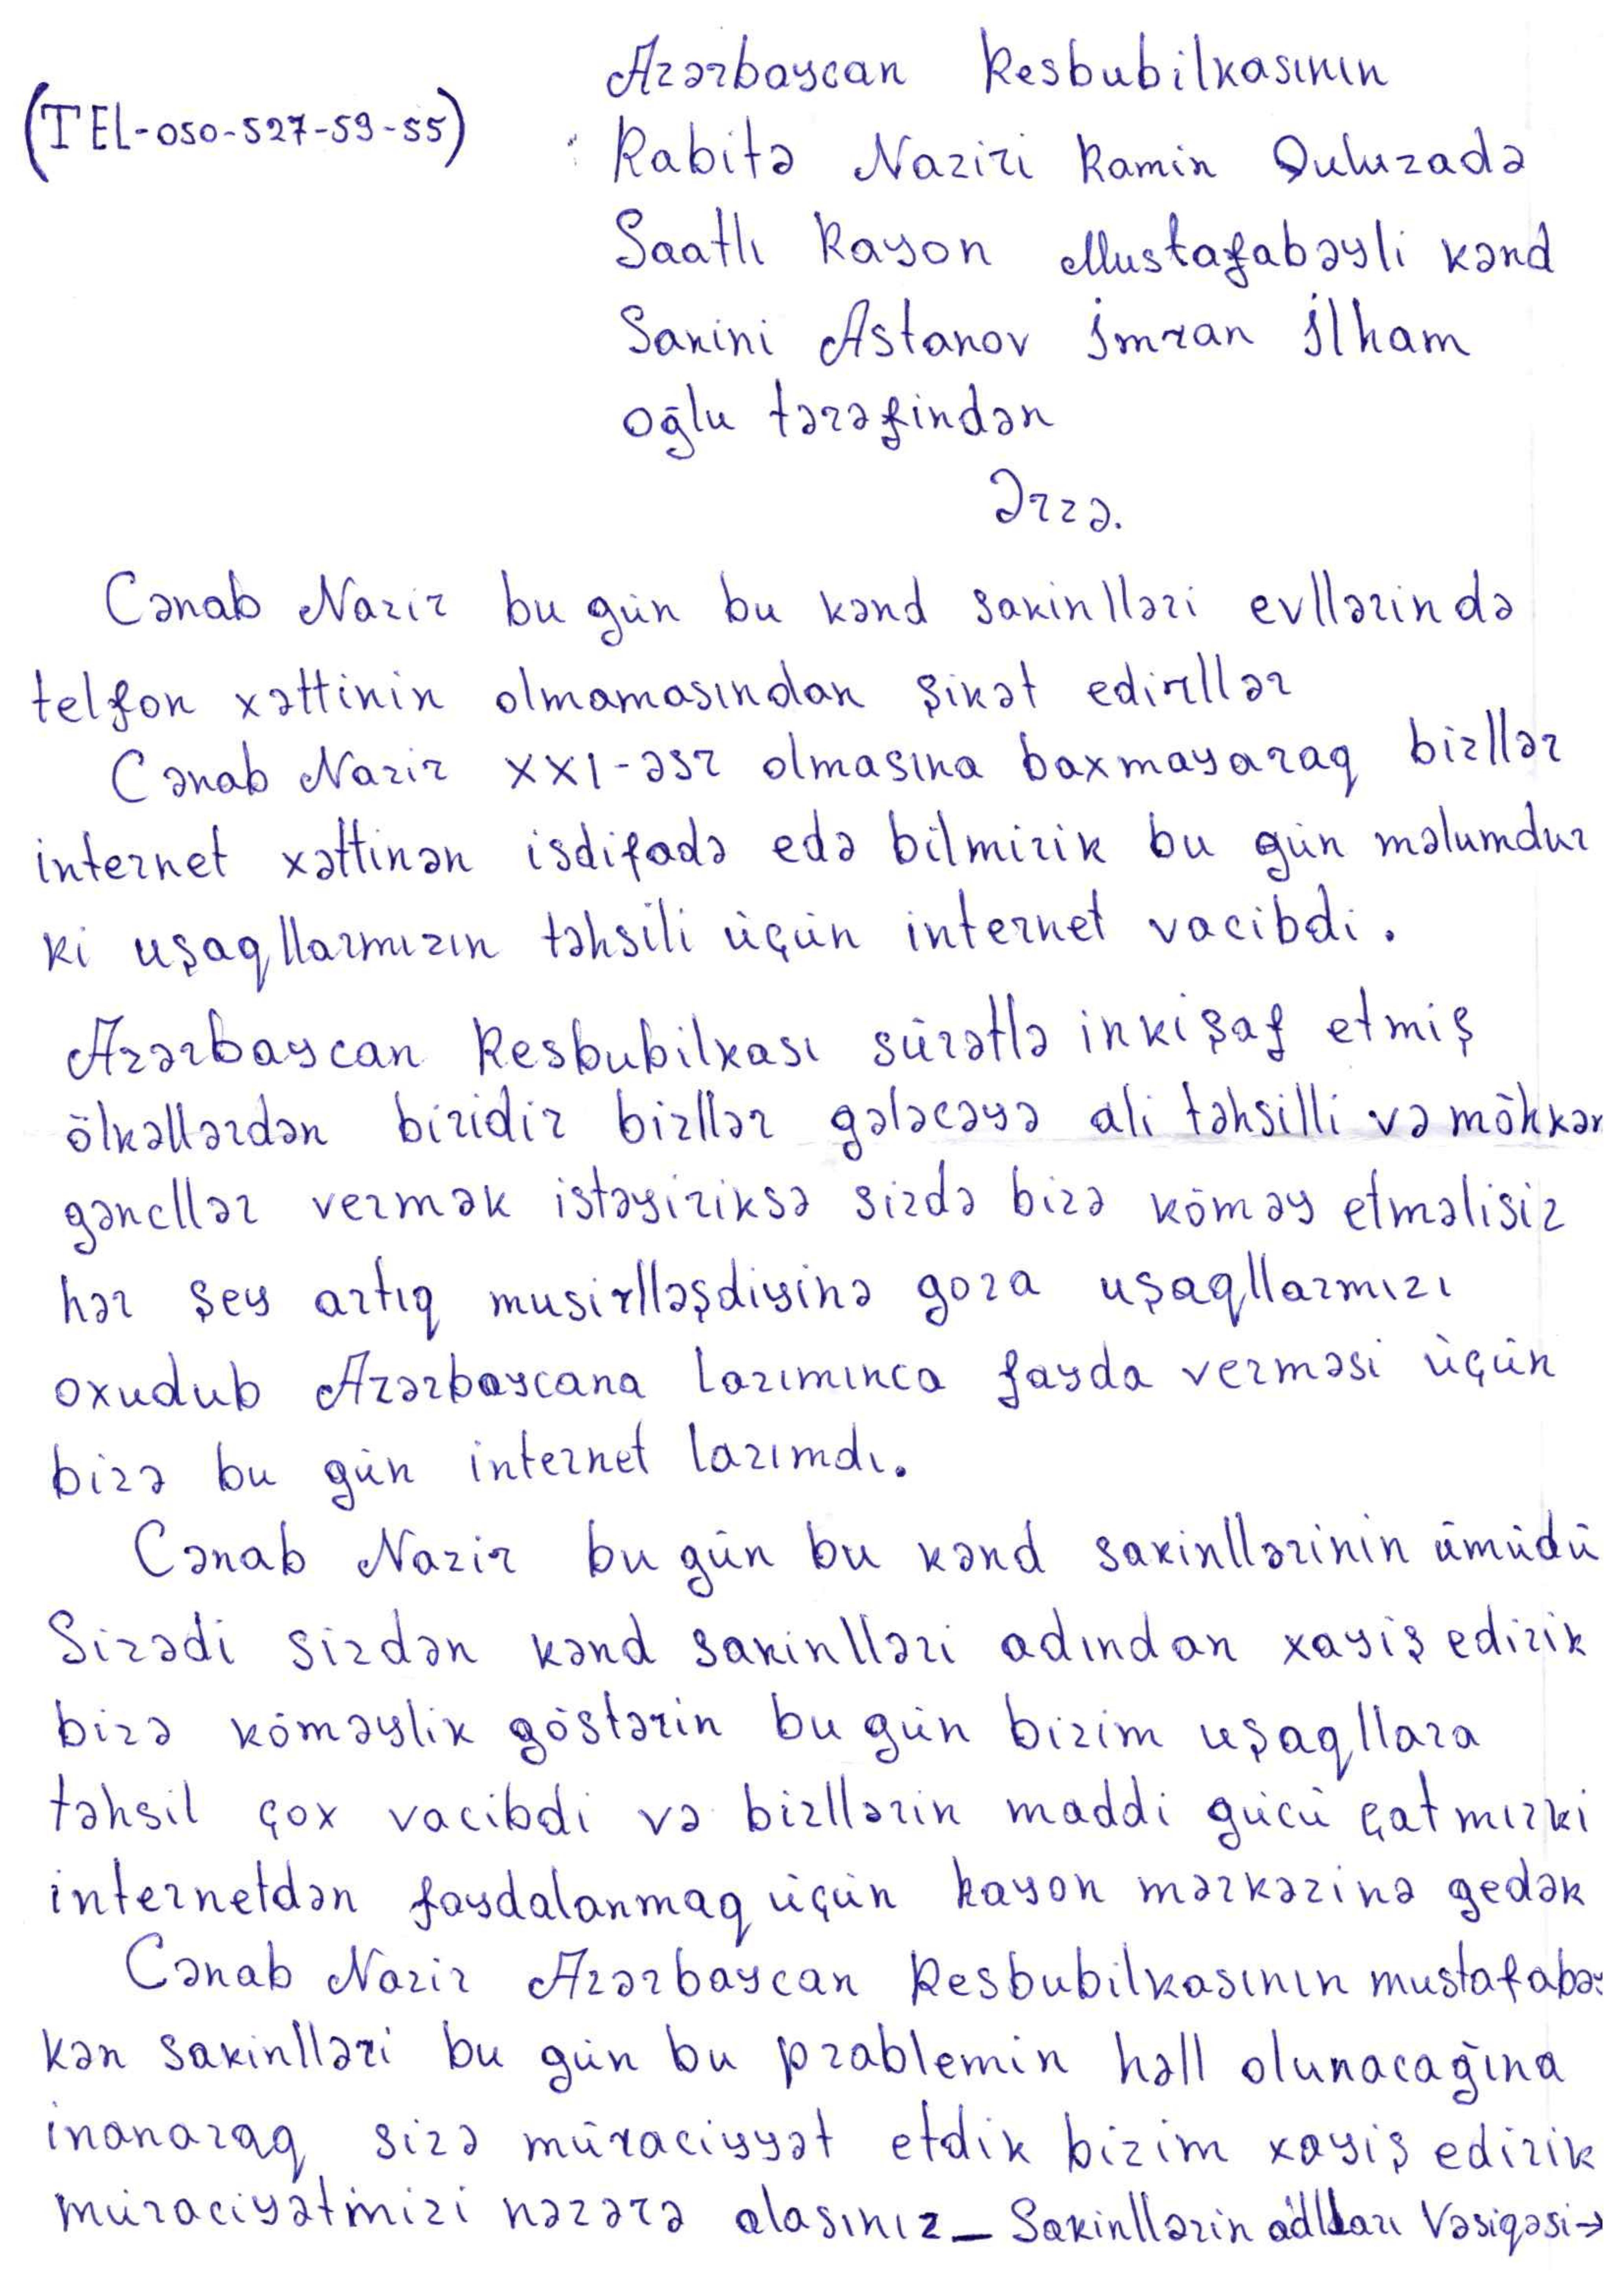 Azərbaycan Resbubilkasının
(TEL-050-527-59-55)
Rabitə Naziri Ramin Quluzadə
Saatlı Rayon Mustafabəyli kənd
Sakini Astanov İmran İlham
oğlu tərəfindən
Ərzə.
Cənab Nazir bu gün bu kənd sakinlləri evllərində
telfon xəttinin olmamasından şikət edirllər
Cənab Nazir XXI-əsr olmasına baxmayaraq bizllər
internet xəttinən isdifadə edə bilmirik bu gün məlumdur
ki uşaqllarmızın təhsili üçün internet vacibdi.
Azərbaycan Resbubilkası sürətlə inkişaf etmiş
ölkəllərdən biridir bizllər gələcəyə ali təhsilli və
gəncllər vermək istəyiriksə sizdə bizə köməy etməlisiz
hər şey artıq musirlləşdiyinə gora uşaqllarmızı
oxudub Azərbaycana lazımınca fayda verməsi üçün
bizə bu gün internet lazımdı.
Cənab Nazir bu gün bu kənd sakinllərinin ümüdü
Sizədi sizdən kənd sakinlləri adından xayiş edirik
bizə köməylik göstərin bu gün bizim uşaqllara
təhsil çox vacibdi və bizllərin maddi gücü çatmırki
internetdən faydalanmaq üçün Rayon mərkəzinə gedək
Cənab Nazir Azərbaycan Resbubilkasının mustafabəy
kən sakinlləri bu gün bu prablemin həll olunacağına
inanaraq sizə müraciyyət etdik bizim xayiş edirik
müraciyətmizi nəzərə alasınız_ Sakinllərin adlları Vəsiqəsi→